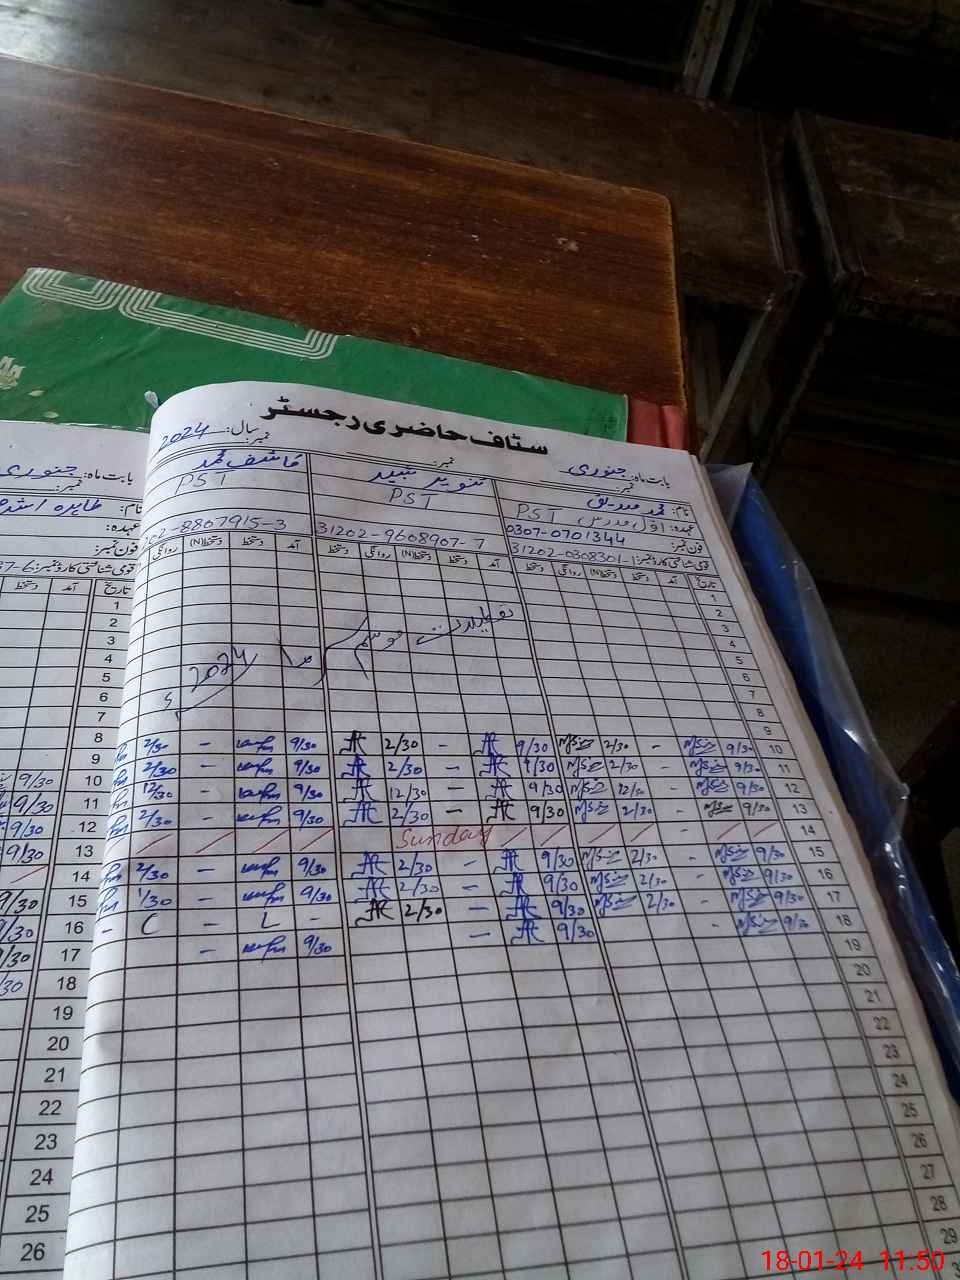 سٹاف حاضری رجسٹر
بابت ماہ: جنوری نمبر: سال: 2024
نام: محمد صدیق
تنویر
کاشف محمد
عہدہ: اول مدرس PST
PST
PST
فون نمبر: 0307-0701344
قومی شناختی کارڈ نمبر: 31202-0308301-1
31202-9608907-7
202-8807915-3
تاریخ آمد دستخط دستخط(N) روانگی دستخط آمد دستخط دستخط(N) روانگی دستخط آمد دستخط دستخط(N) روانگی
1
2
3
4
5
6
7
8
9
تعطیلات موسم
2024
10 9/30 - 2/30 9/30 - 2/30 9/30 - 2/30
11 9/30 - 2/30 9/30 - 2/30 9/30 - 2/30
12 9/30 - 12/30 9/30 - 12/30 9/30 - 12/30
13 9/30 - 2/30 9/30 - 2/30 9/30 - 2/30
14 Sunday
15 9/30 - 2/30 9/30 - 2/30 9/30 - 2/30
16 9/30 - 2/30 9/30 - 2/30 9/30 - 1/30
17 9/30 - 2/30 9/30 - 2/30 - L - C -
18 9/30 - 9/30 - 9/30 -
19
20
21
22
23
24
25
26
27
28
29
بابت ماہ: جنوری
نمبر:
نام: طاہرہ
عہدہ:
فون نمبر:
قومی شناختی کارڈ نمبر: 37-6
تاریخ آمد دستخط
1
2
3
4
5
6
7
8
9
10 9/30
11 9/30
12 9/30
13 9/30
14
15 9/30
16 9/30
17 9/30
18 9/30
19
20
21
22
23
24
25
26
18-01-24 11:50